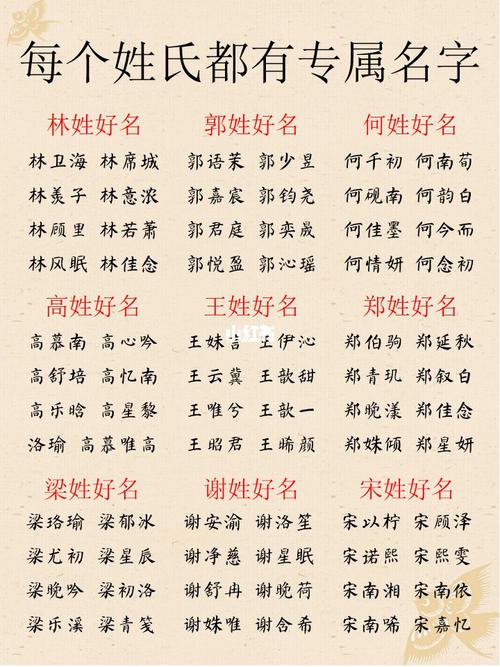 每个姓氏都有专属名字
林姓好名
林卫海 林席城
林羡子 林意浓
林顾里 林若萧
林风眠 林佳念
郭姓好名
郭语茉 郭少昱
郭嘉宸 郭钧尧
郭君庭 郭奕晟
郭悦盈 郭沁瑶
何姓好名
何千初 何南荀
何砚南 何韵白
何佳墨 何今而
何情妍 何念初
高姓好名
高慕南 高心吟
高舒培 高忆南
高乐晗 高星黎
洛瑜 高慕唯高
王姓好名
王姝言 王伊沁
王云冀 王歆甜
王唯兮 王歆一
王昭君 王晞颜
小红书
郑姓好名
郑伯驹 郑延秋
郑青玑 郑叙白
郑晚漾 郑佳念
郑姝倾 郑星妍
梁姓好名
梁珞瑜 梁郁冰
梁尤初 梁星辰
梁晚吟 梁初洛
梁乐溪 梁青笺
谢姓好名
谢安渝 谢洛笙
谢净慈 谢星眠
谢舒冉 谢晚荷
谢姝唯 谢含希
宋姓好名
宋以柠 宋顾泽
宋诺熙 宋熙雯
宋南湘 宋南依
宋南唏 宋嘉忆